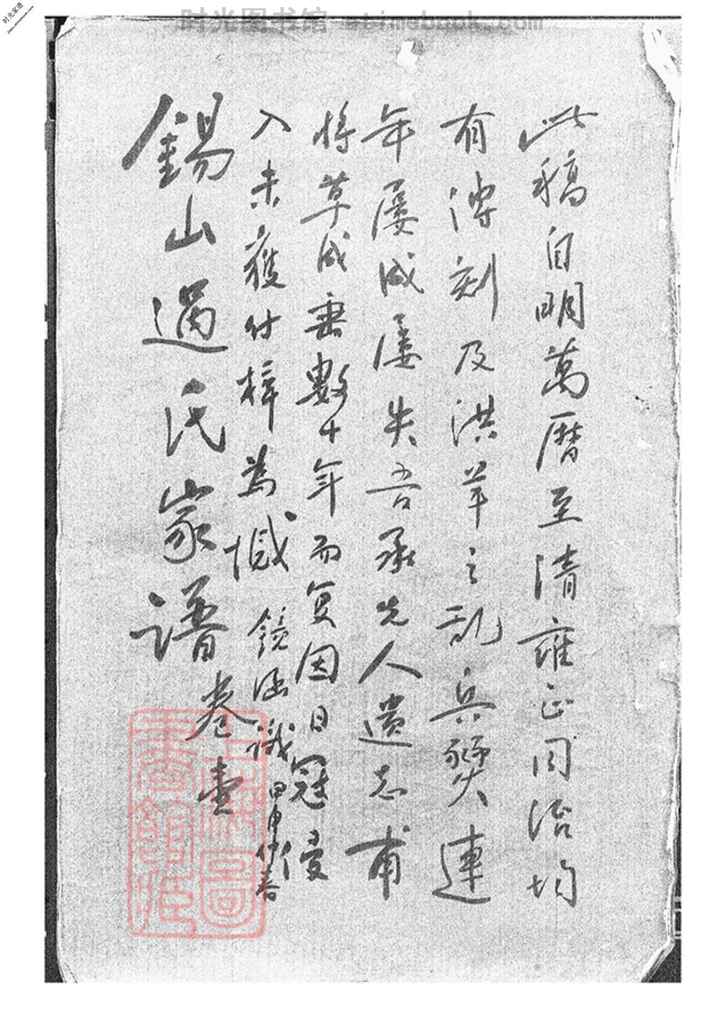 时光图书馆 etimebook.com
此稿自明萬曆至清雍正同治均
有傳刻及洪羊之亂兵燹連
年屡成屡失吾承先人遺志甫
将草成垂數十年而复因日冦侵
入未獲付梓為憾 鏡涵識 甲申仲春
錫山過氏家譜 卷壹